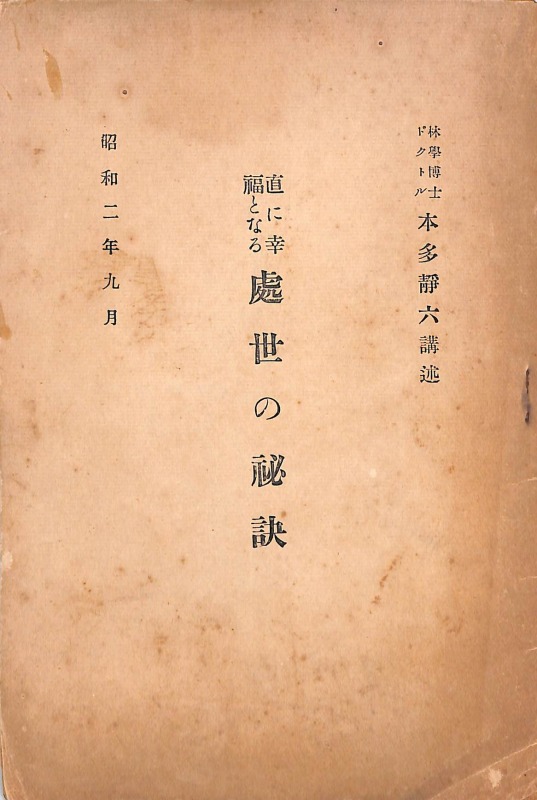 林學博士
ドクトル
本多靜六講述
直に幸
福となる
處世の祕訣
昭和二年九月